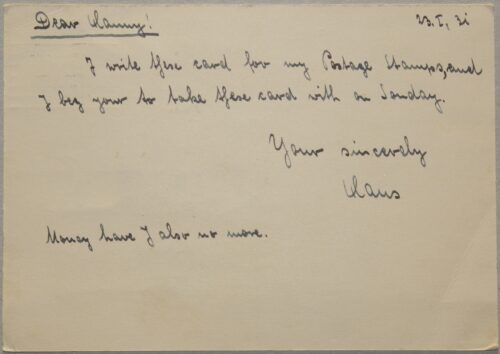 Dear Nanny!
23.I.31
I write these card for my Postage Stamps, and
I beg your to take these card with on Sonday.
Your sincerely
Klaus
Money have I also no more.